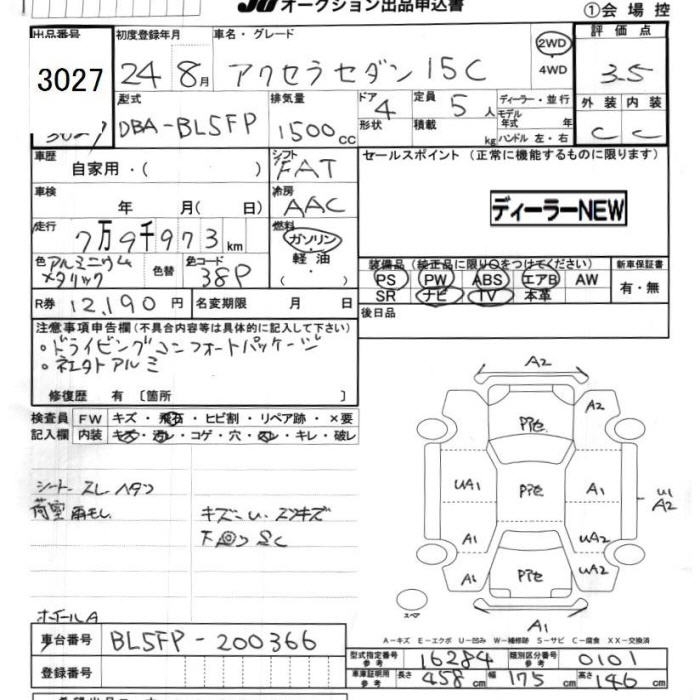 JU オークション出品申込書
①会場控
出品番号 初度登録年月 車名・グレード 評価点
3027 24 8月 アクセラセダン15C 2WD 4WD 3.5
3027
型式 排気量 ドア 定員 ディーラー・並行 外装 内装
DBA-BL5FP 1500cc 4 5人 モデル年式 年 C C
形状 積載 kg ハンドル 左・右
車歴 シフト セールスポイント (正常に機能するものに限ります)
自家用・( ) FAT
車検 冷房 ディーラーNEW
年 月( 日) AAC
走行 燃料
7万9千973km ガソリン・軽油・( )
色 アルミニウムメタリック 色替 色コード 38P
装備品 (純正品に限り○をつけてください) 新車保証書
PS PW ABS エアB AW 有・無
SR ナビ TV 本革
R券 12,190円 名変期限 月 日
後日品
注意事項申告欄(不具合内容等は具体的に記入して下さい)
・ドライビングコンフォートパッケージ
修復歴 有 〔箇所 〕
検査員 FW キズ・飛石・ヒビ割・リペア跡・×要
記入欄 内装 キズ・汚レ・コゲ・穴・スレ・キレ・破レ
A2
A2
シート スレ ハタツ
荷室
キズ
UA1 A1 U1 A2
A1 A2
A1 UA2
スペア
A1
ホイールA
A-キズ E-エクボ U-凹み W-補修跡 S-サビ C-腐食 XX-交換済
車台番号 BL5FP-200366
型式指定番号 参考 16284 類別区分番号 参考 0101
登録番号
車庫証明用 参考 長さ 458cm 幅 175cm 高さ 146cm